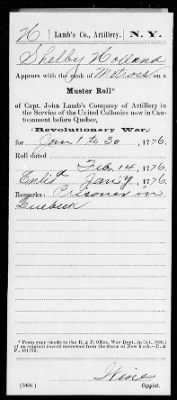 H | Lamb's Co., Artillery. | N. Y.
Shelby Holland
Appears with the rank of Matross on a
Muster Roll*
of Capt. John Lamb's Company of Artillery in
the Service of the United Collonies now in Can-
tonment before Quebec,
(Revolutionary War,)
for Jan 1 to 30, 1776.
Roll dated
Feb. 14, 1776.
Enlistd Jany 9, 1776.
Remarks: Prisoner in
Quebeck
* From copy (made in the R. & P. Office, War Dept.,
of an original record borrowed from the State of New York.—R. &
P.
Copyist.